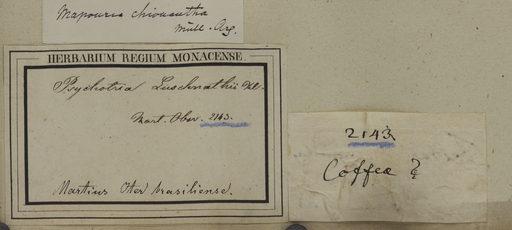 Mapouria chionantha
Müll. Arg.
HERBARIUM REGIUM MONACENSE.
Psychotria Luschnathii
Mart. Obser. 2143.
Martius Iter brasiliense.
2143
Coffea ?